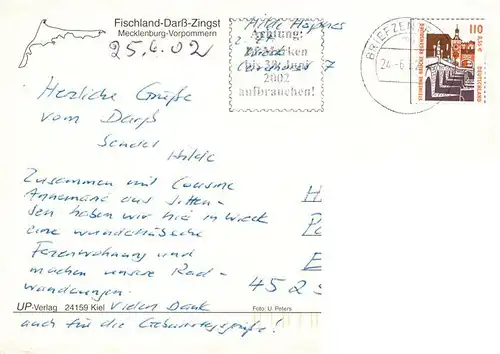 Fischland-Darß-Zingst
Mecklenburg-Vorpommern
25.6.02
Hilde
7
Achtung:
bis 30. Juni
2002
aufbrauchen!
BRIEFZEN
24.-6.
110
0,56 €
STEINERNE BRÜCKE REGENSBURG
DEUTSCHLAND
Herzliche Grüße
vom Darß
sendet
Hilde
Zusammen mit Cousine
Annemarie aus Sitten-
sen haben wir hier in Wieck
eine wunderhübsche
Ferienwohnung und
machen unsere Rad-
wanderungen.
Vielen Dank
auch für die Geburtstagsgrüße!
H
P
E
452
UP-Verlag 24159 Kiel
Foto: U. Peters